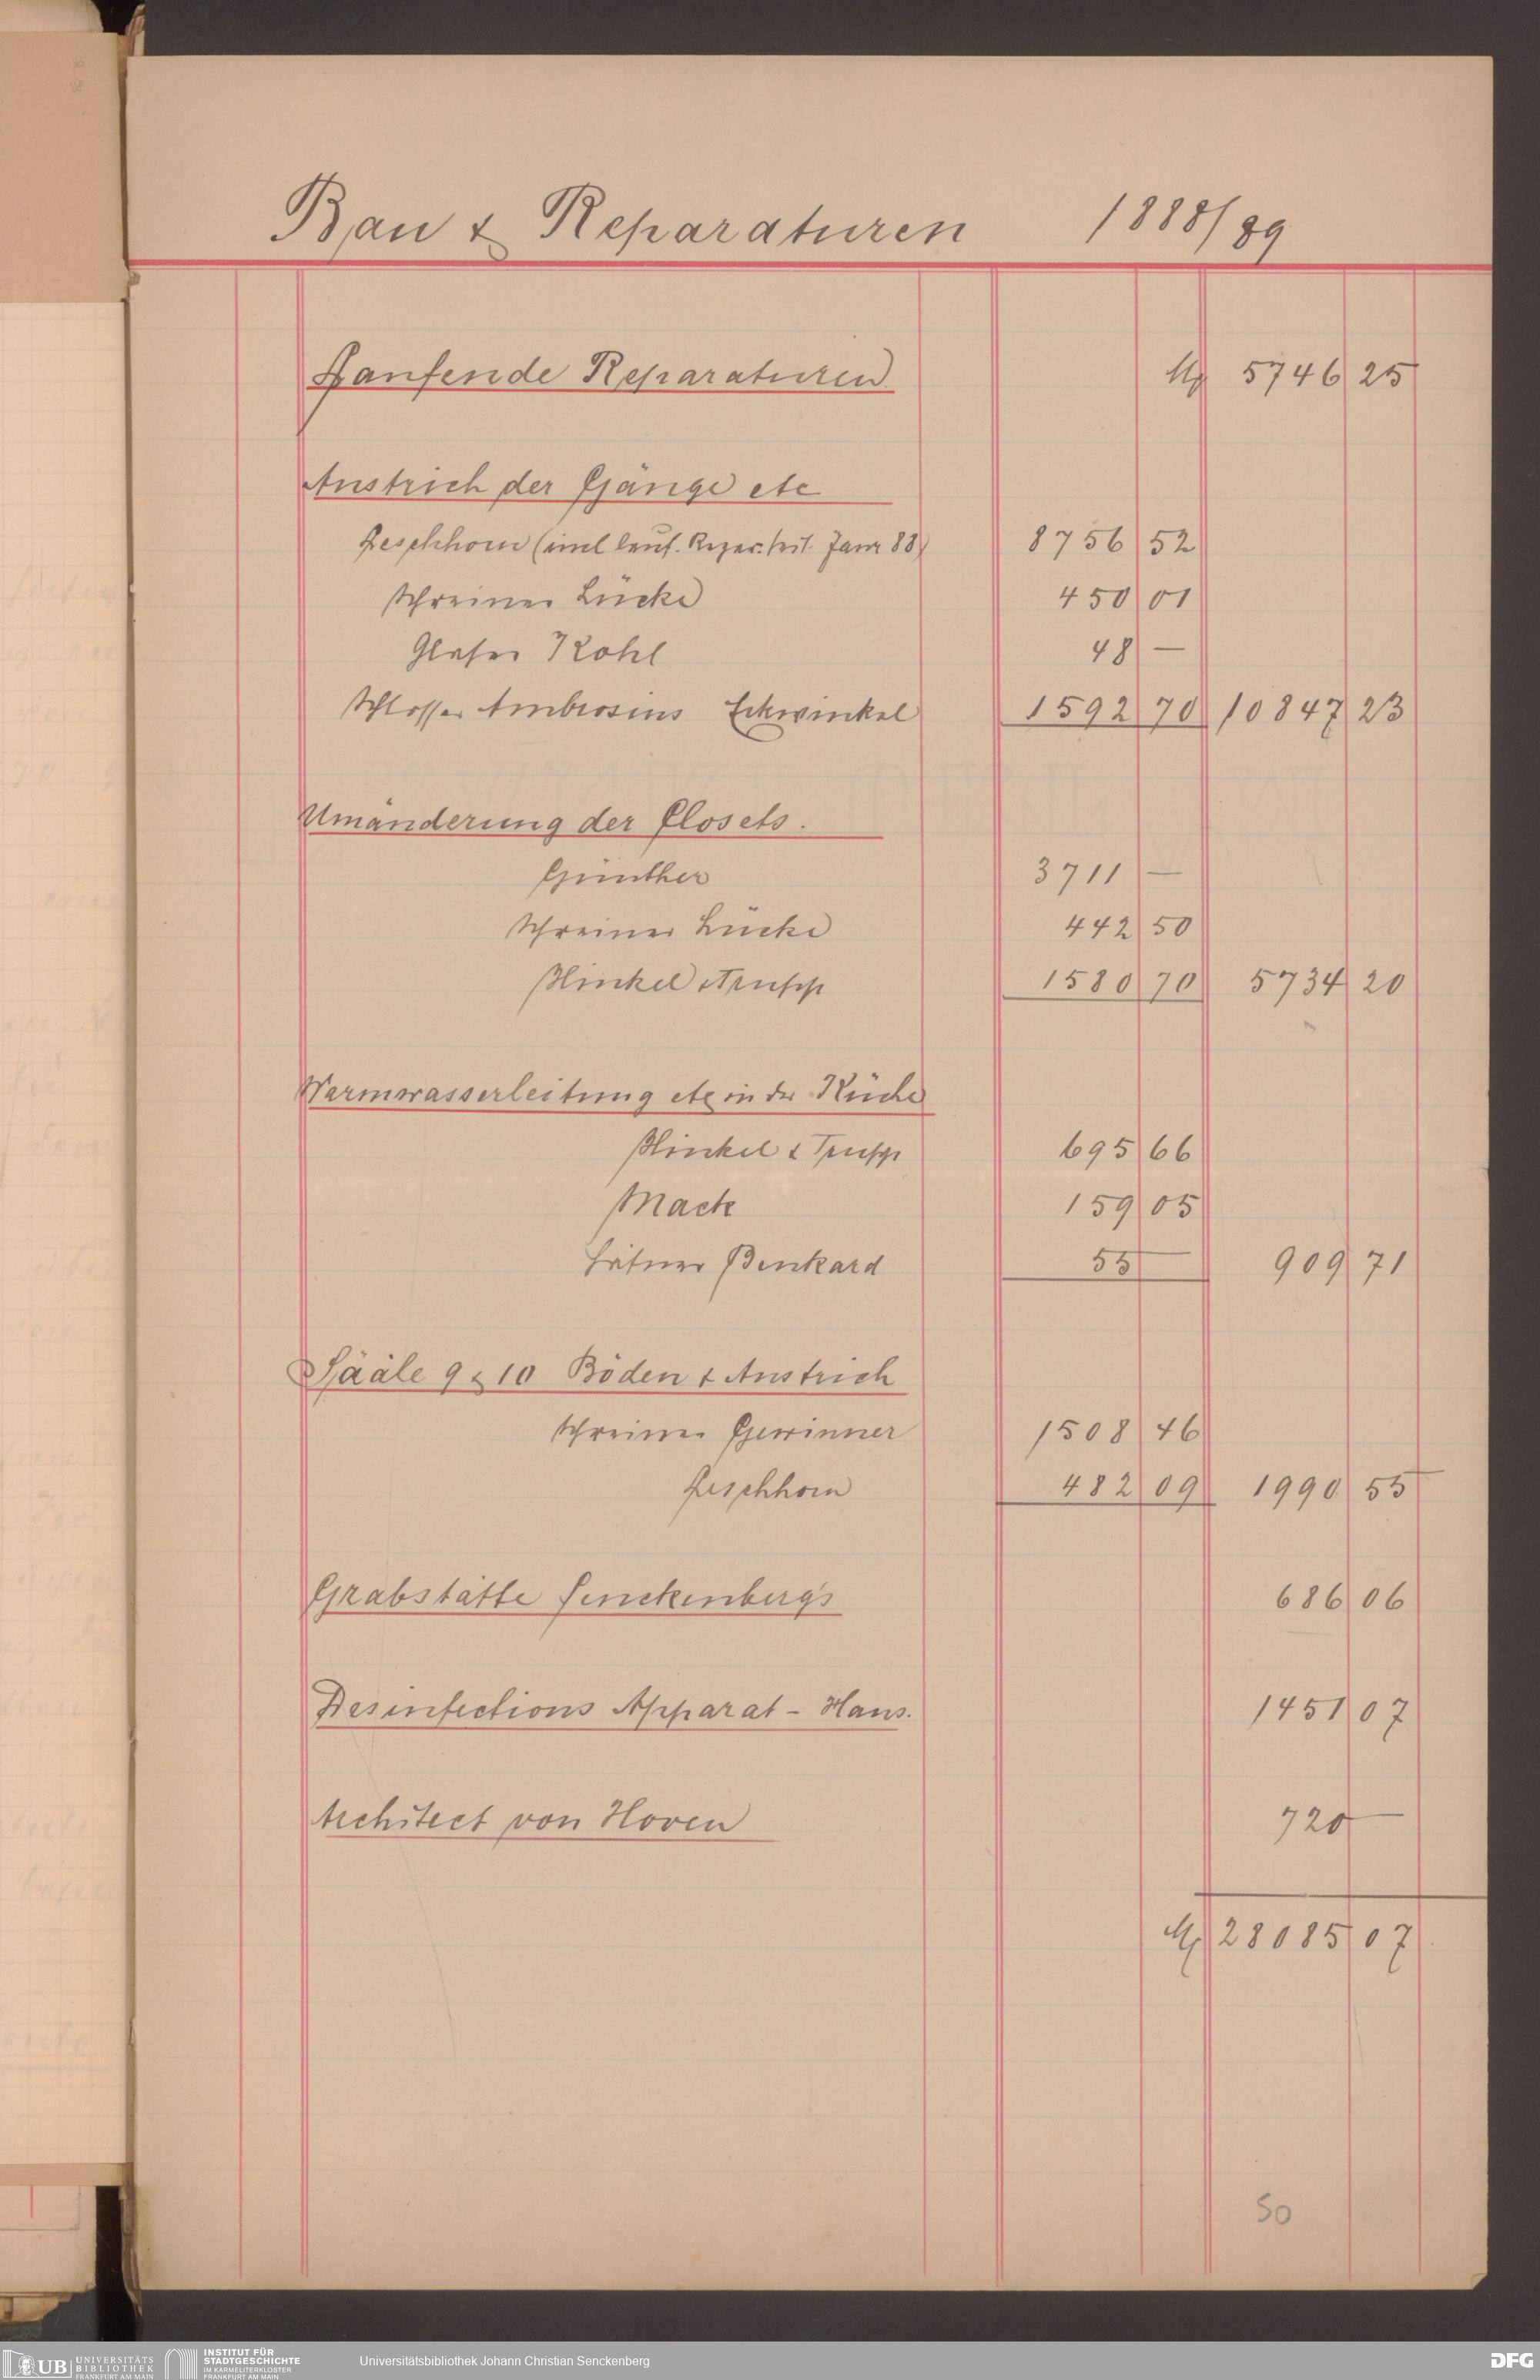 Bau & Reparaturen 1888/89
Laufende Reparaturen M 5746 25
Anstrich der Gänge etc
Peschhorn (incl lauf. Repar. seit Janr 88) 8756 52
Schreiner Lücke 450 01
Glaser Kohl 48 —
Schlosser Ambrosius Eckwinkel 1592 70 10847 23
Umänderung der Closets.
Günther 3711 —
Schreiner Lücke 442 50
Hinkel & Trupp 1580 70 5734 20
Warmwasserleitung etc in der Küche
Hinkel & Trupp 695 66
Mack 159 05
Benkard 55 — 909 71
Sääle 9 & 10 Böden & Anstrich
Schreiner Gewinner 1508 46
Peschhorn 482 09 1990 55
Grabstätte Senckenberg's 686 06
Desinfections Apparat - Haus. 1451 07
Architect von Hoven 720 —
M 28085 07
50
UB UNIVERSITÄTS BIBLIOTHEK FRANKFURT AM MAIN
INSTITUT FÜR STADTGESCHICHTE IM KARMELITERKLOSTER FRANKFURT AM MAIN
Universitätsbibliothek Johann Christian Senckenberg
DFG